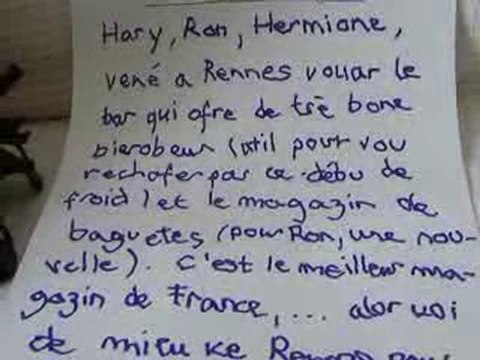 Hary, Ron, Hermione,
vené a Rennes vouar le
bar qui ofre de trè bone
bierobeur (util pour vou
rechofer par ce débu de
froid) et le magazin de
baguetes (pour Ron, une nou-
velle). C'est le meilleur ma-
gazin de France, ... alor uoi
de mieu ke Rennes pour